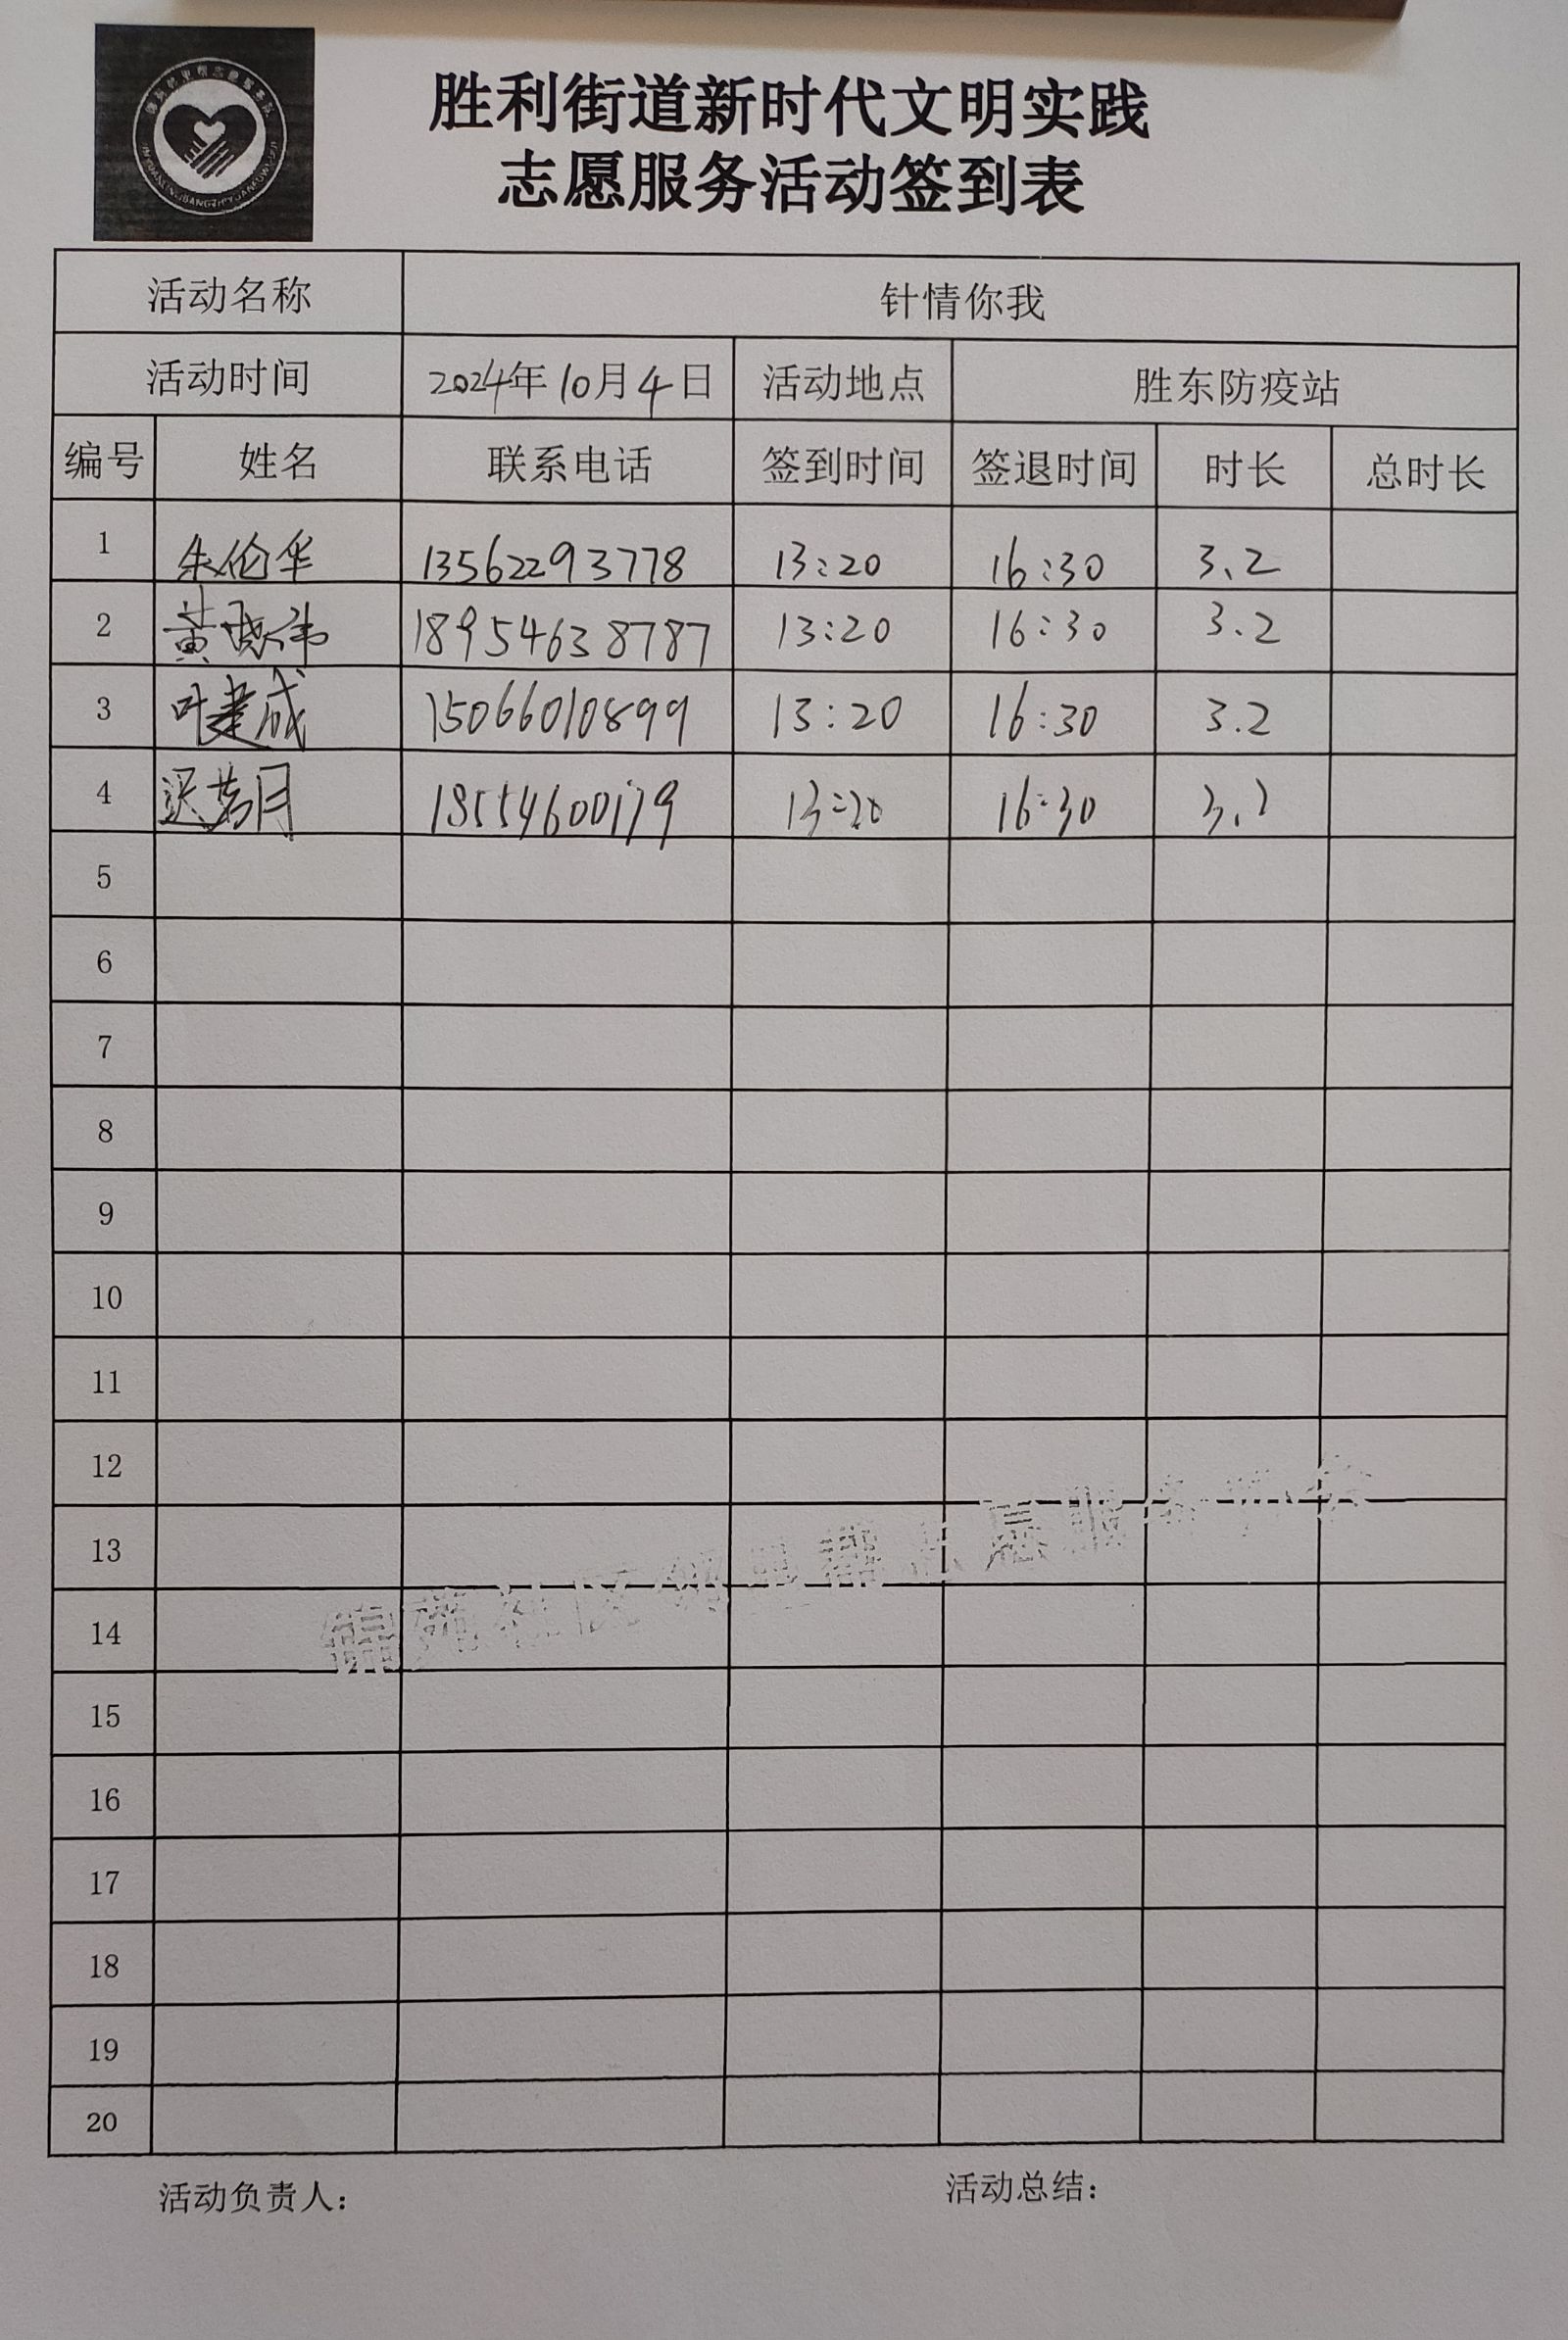 胜利街道新时代文明实践
志愿服务活动签到表
活动名称 针情你我
活动时间 2024年10月4日 活动地点 胜东防疫站
编号 姓名 联系电话 签到时间 签退时间 时长 总时长
1 朱伦华 13562293778 13:20 16:30 3.2
2 黄晓伟 18954638787 13:20 16:30 3.2
3 叶建成 15066010899 13:20 16:30 3.2
4 迟芳月 18554600179 13:20 16:30 3.2
5
6
7
8
9
10
11
12
13
14
15
16
17
18
19
20
活动负责人： 活动总结：